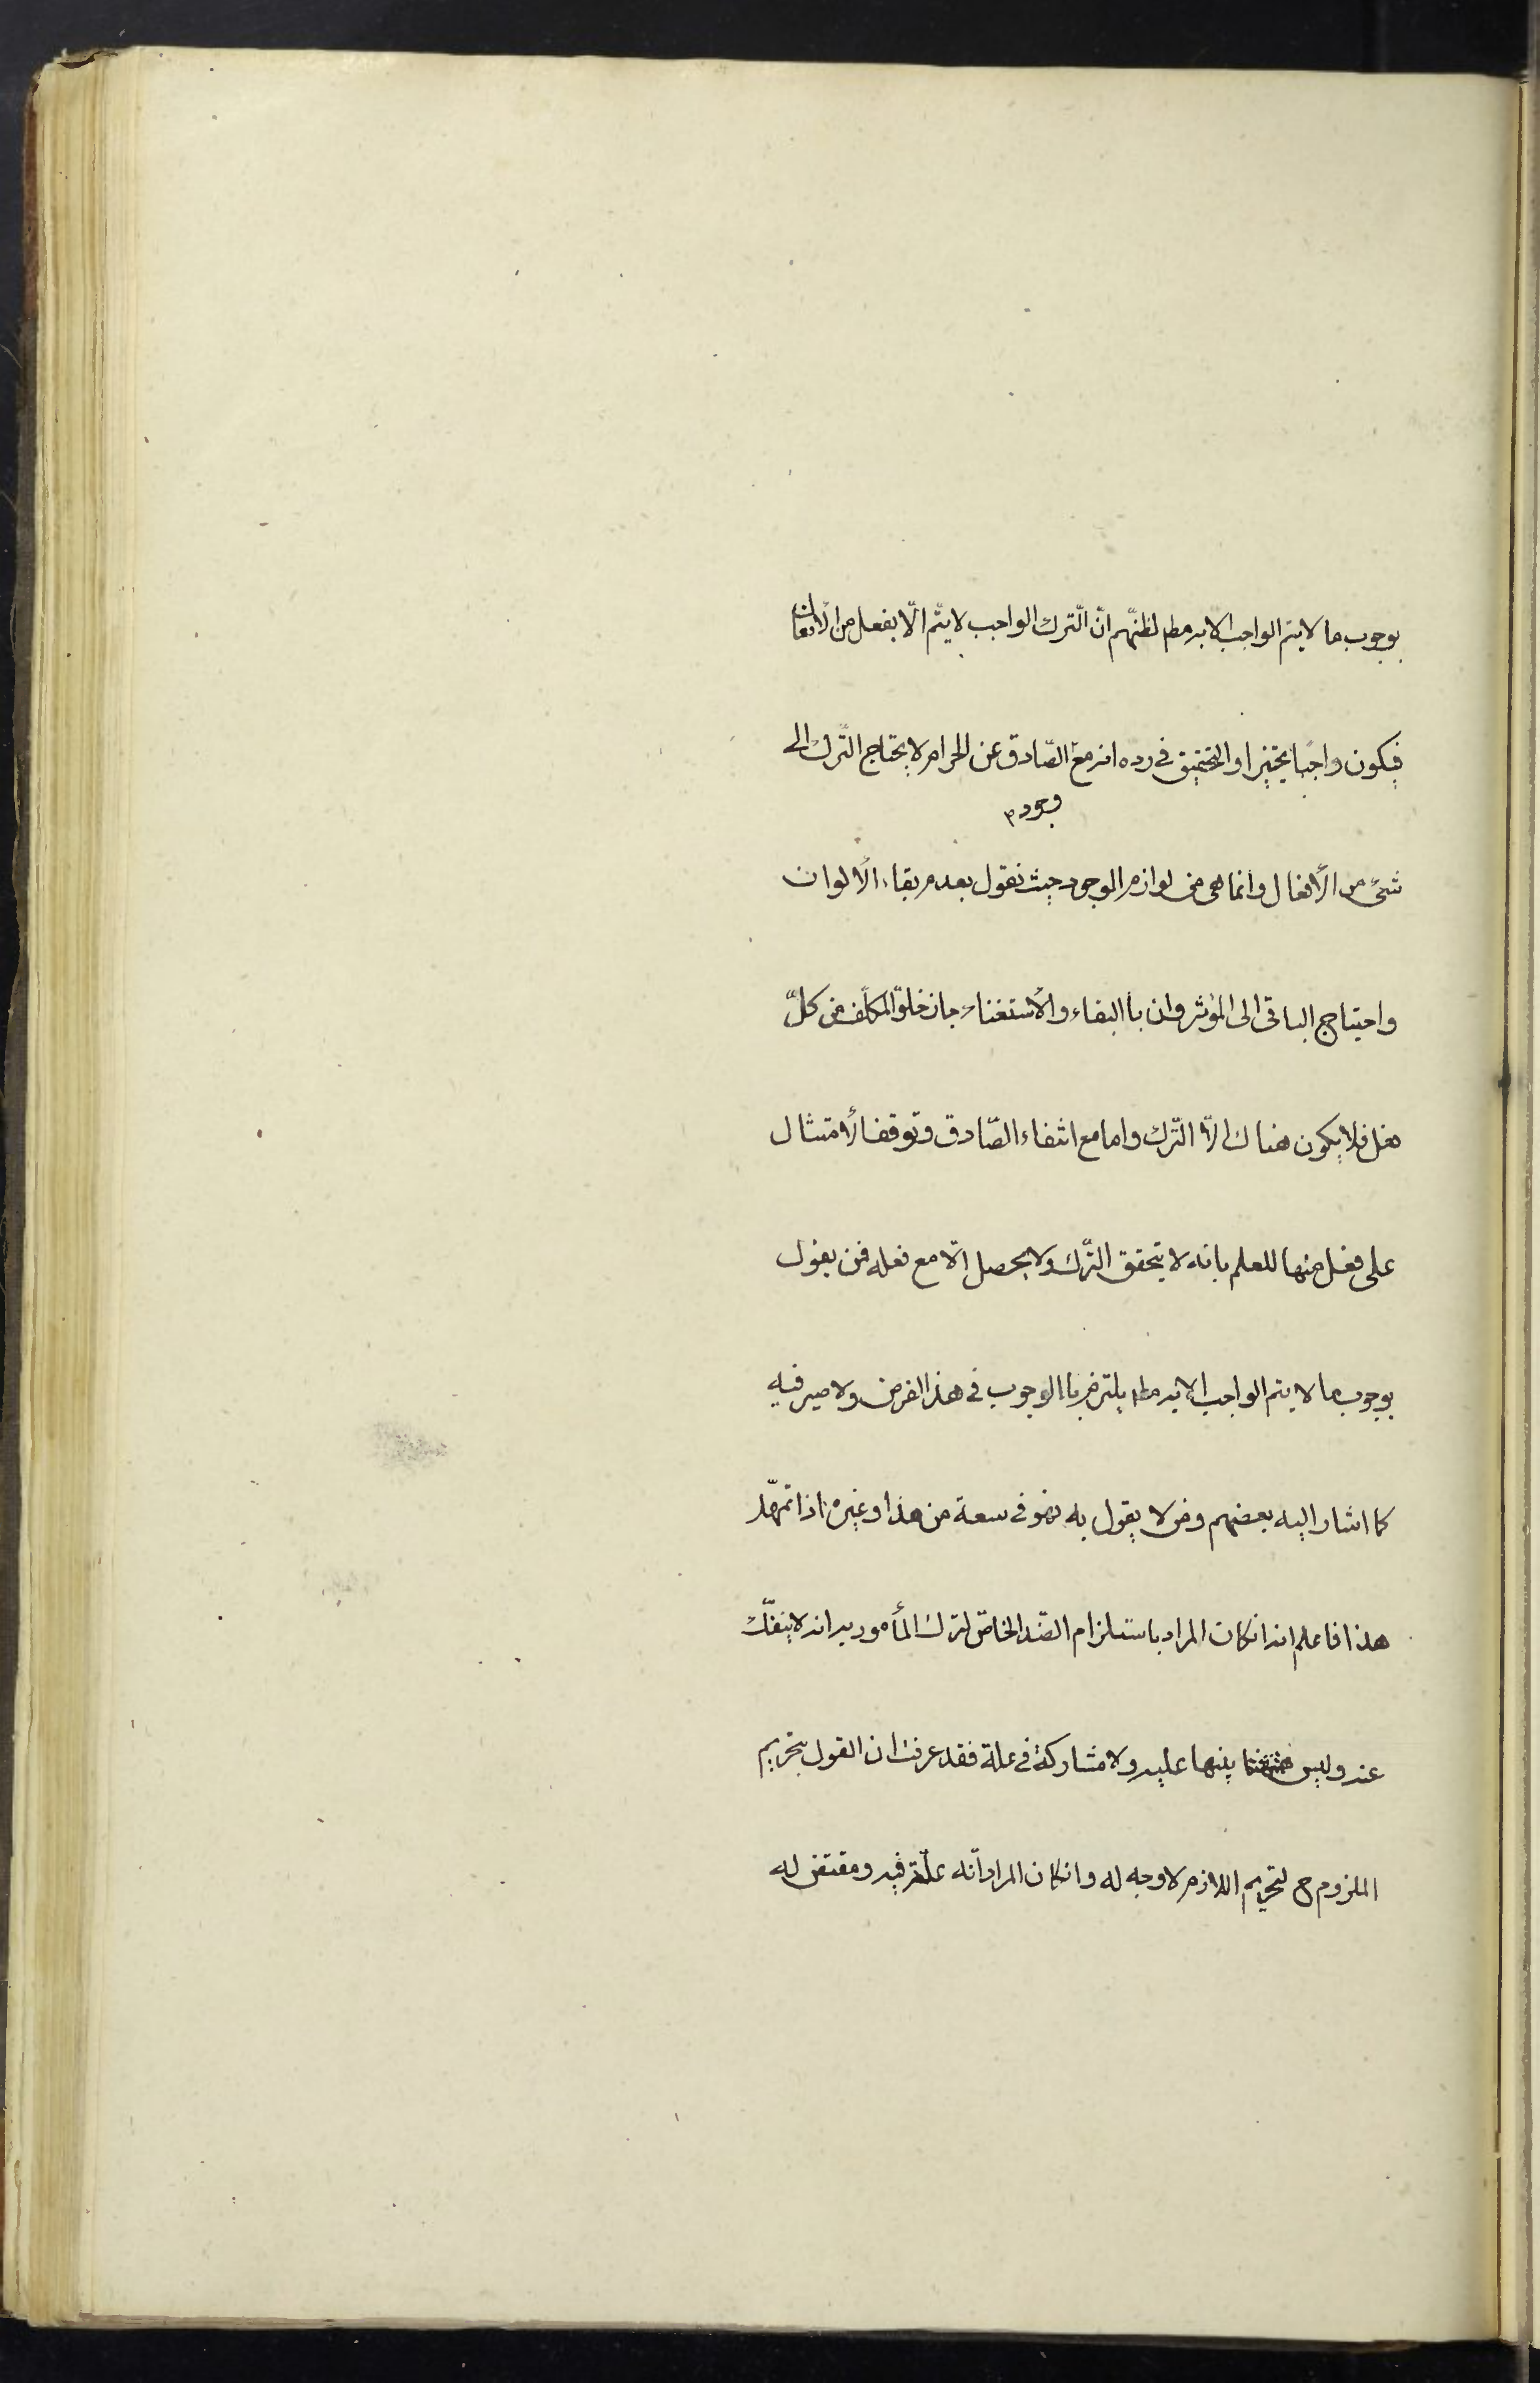 بوجوب ما لا يتم الواجب الا به مط لظنّهم انّ التّرك الواجب لا يتّم الّا بفعل من الأفعال
فيكون واجبا تخييرا والتحقيق في رده انه مع الصّارف عن الحرام لا يحتاج التّرك الى
وجود م
شئ من الأفعال وانما هى من لوازم الوجود حيث نقول بعدم بقاء الألوان
واحتياج الباقى الى المؤثر وان با البقاء والأستغناء جاز خلوّ المكلّف من كلّ
فعل فلا يكون هناك الّا التّرك واما مع انتفاء الصّارف وتوقف الأمتثال
على فعل منها للعلم بانه لا يتحقق التّرك ولا يحصل الّا مع فعله فمن يقول
بوجوب ما لا يتم الواجب الا به مط يلتزم با الوجوب في هذا الفرض ولا ضير فيه
كما اشار اليه بعضهم ومن لا يقول به فهو في سعة من هذا وغيره اذا تمهّد
هذا فاعلم انه انكان المراد باستلزام الضّد الخاصّ لترك المأمور به انه لا ينفكّ
عنه وليس بينهما عليه ولا مشاركة في علة فقد عرفت ان القول بتحريم
الملزوم ح لتحريم اللازم لا وجه له وانكان المراد انّه علّة فيه ومقتض له